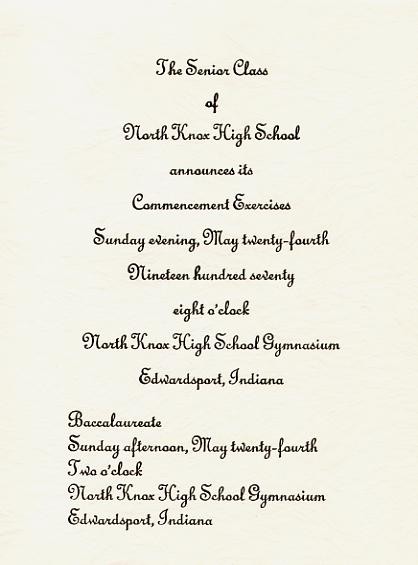 The Senior Class
of
North Knox High School
announces its
Commencement Exercises
Sunday evening, May twenty-fourth
Nineteen hundred seventy
eight o'clock
North Knox High School Gymnasium
Edwardsport, Indiana
Baccalaureate
Sunday afternoon, May twenty-fourth
Two o'clock
North Knox High School Gymnasium
Edwardsport, Indiana